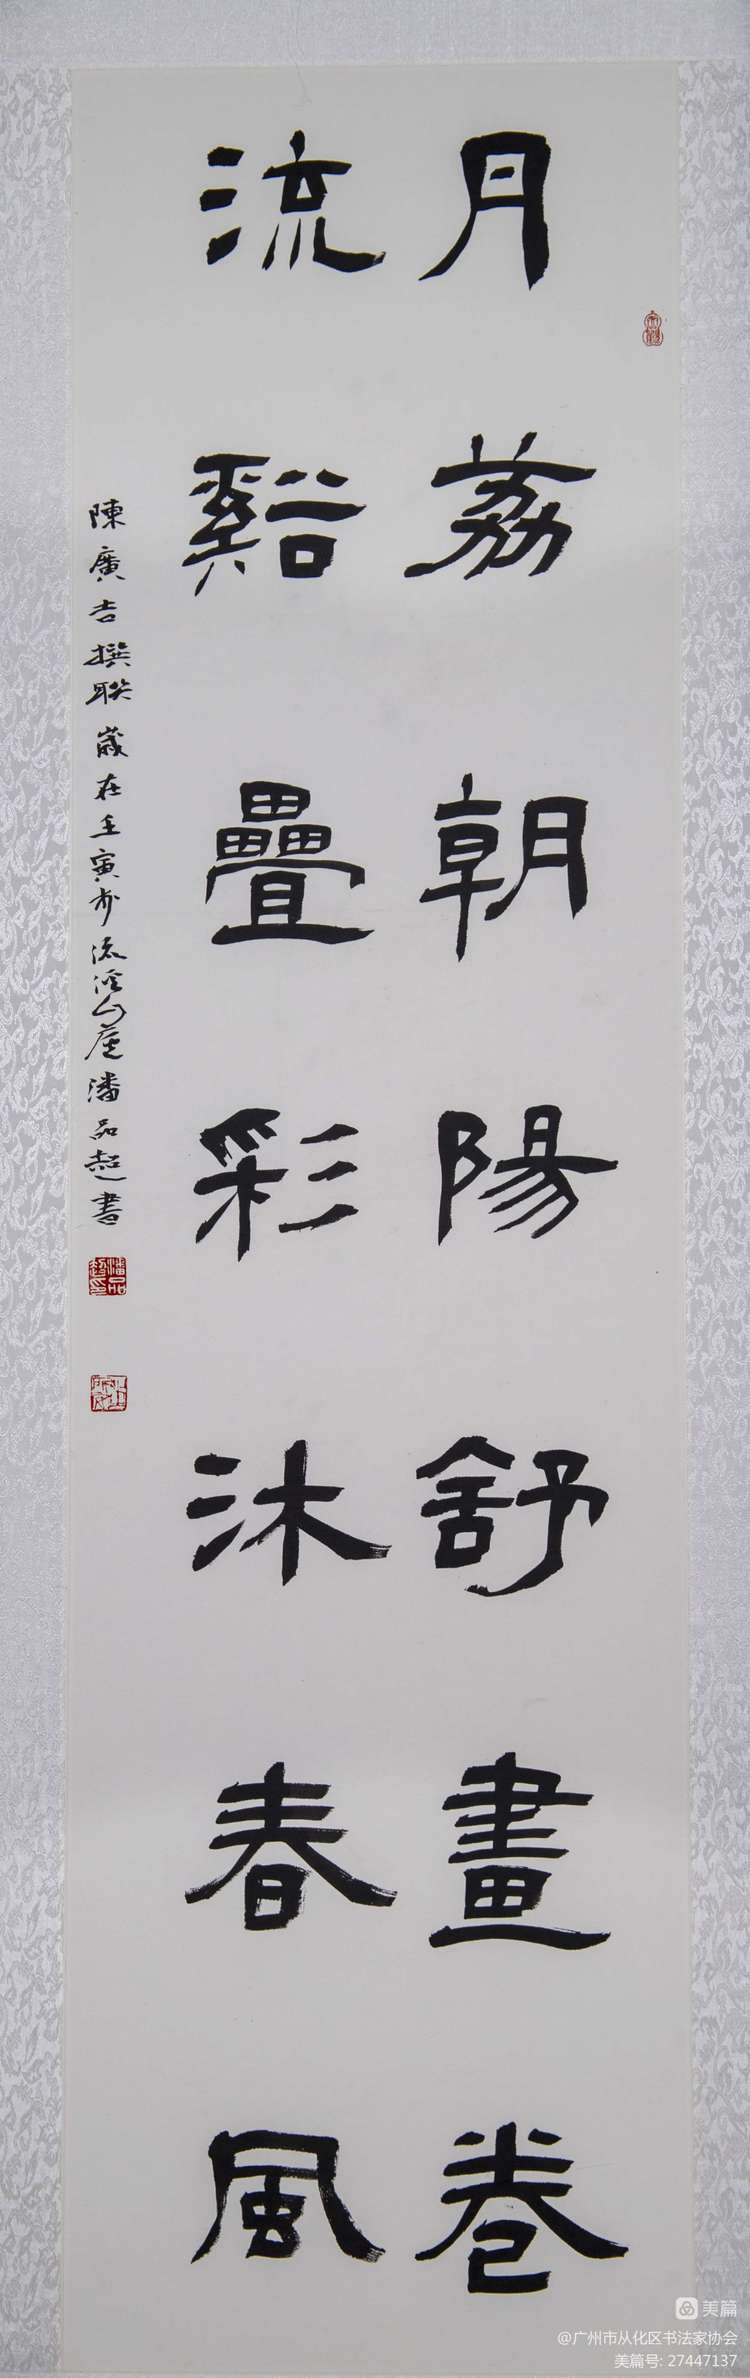 月荔朝陽舒畫卷
流谿疊彩沐春風
陳廣吉撰聯歲在壬寅於流溪山廬潘品超書
潘品超印
美篇
@广州市从化区书法家协会
美篇号: 27447137